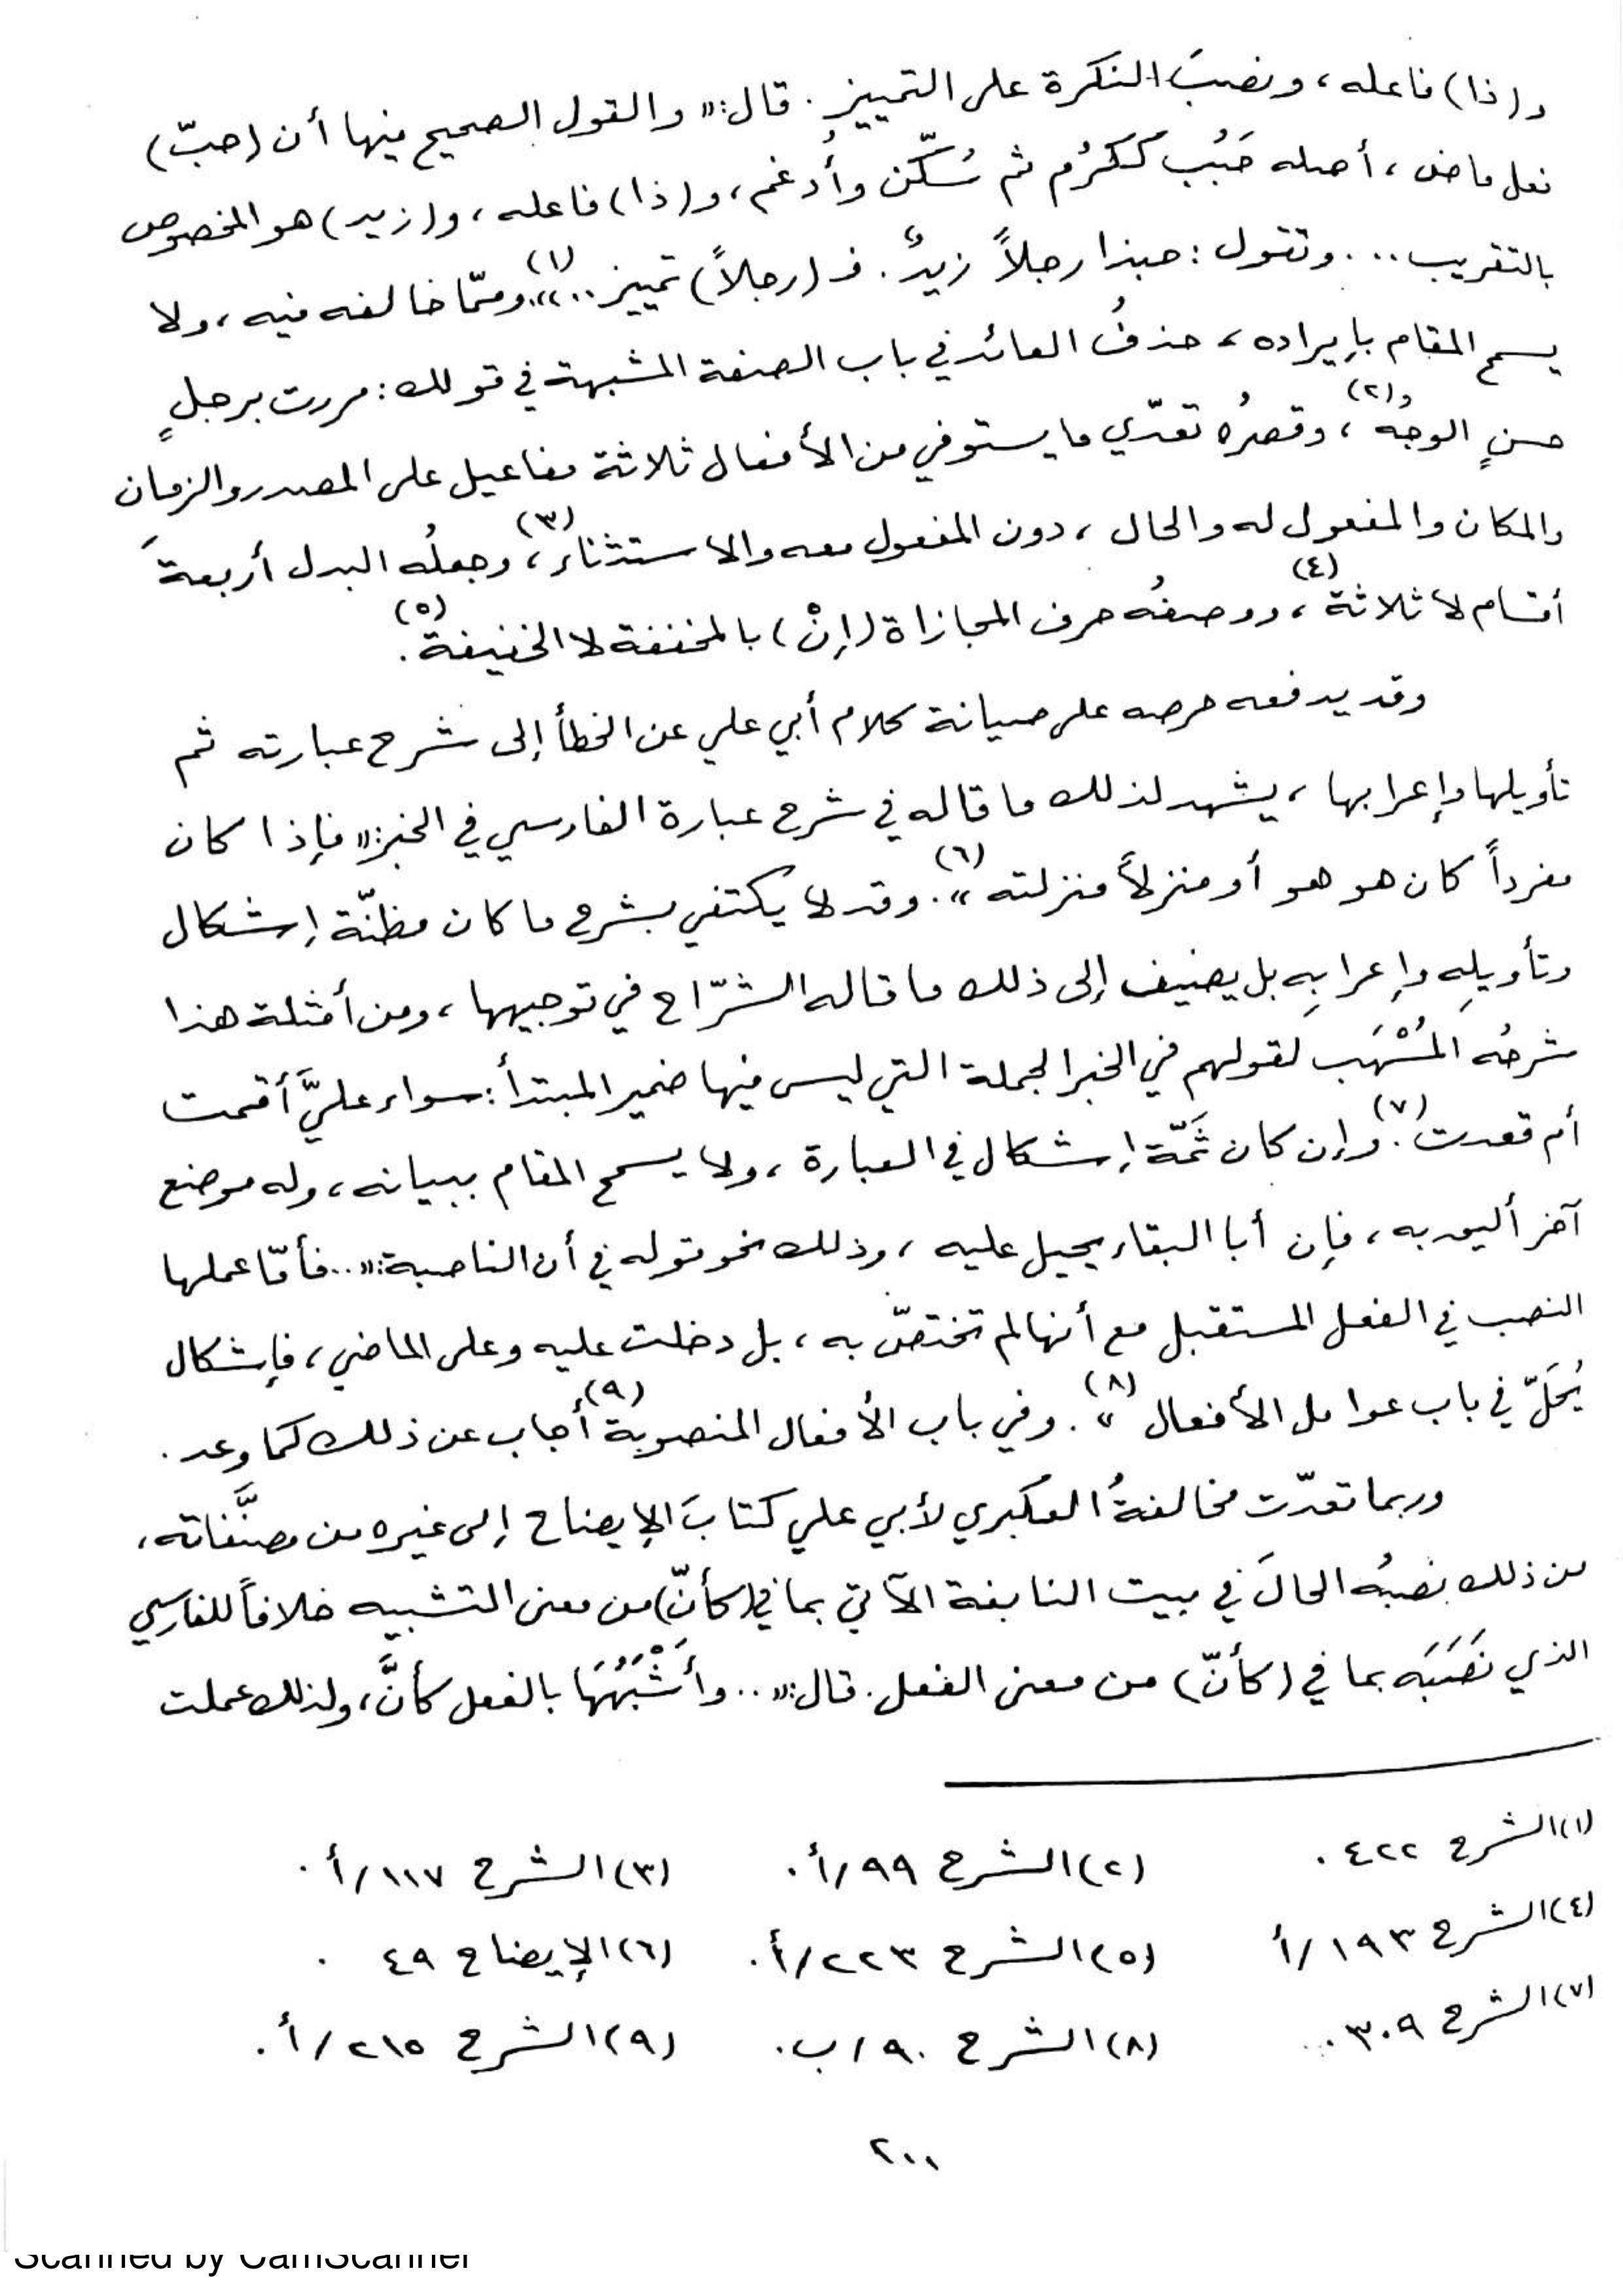 و(ذا) فاعله، ونصبَ النكرة على التمييزِ. قال: «والقول الصحيح فيها أن (حبّ)
فعل ماض، أصله حَبُب ككرُم ثم سُكّن وأُدغم، و(ذا) فاعله، و(زيد) هو المخصوص
بالتقريب... وتقول: حبذا رجلاً زيدٌ. فـ (رجلاً) تمييز..»(١). وممّا خالفه فيه، ولا
يسمح المقام بإيراده، حذفُ العائد في باب الصفة المشبهة في قولك: مررت برجلٍ
حسنٍ الوجهُ(٢)، وقصرُه تعدّي ما يستوفي من الأفعال ثلاثة مفاعيل على المصدر والزمان
والمكان والمفعول له والحال، دون المفعول معه والاستثناء(٣)، وجعلُه البدل أربعةَ
أقسام لا ثلاثة(٤)، ووصفُه حرف المجازاة (إنْ) بالمخففة لا الخفيفة(٥).
وقد يدفعه حرصه على صيانة كلام أبي علي عن الخطأ إلى شرح عبارته ثم
تأويلها وإعرابها، يشهد لذلك ما قاله في شرح عبارة الفارسي في الخبر: «فإذا كان
مفرداً كان هو هو أو منزلاً منزلته»(٦). وقد لا يكتفي بشرح ما كان مظنّة إشكال
وتأويلِه وإعرابِه بل يضيف إلى ذلك ما قاله الشرّاح في توجيهها، ومن أمثلة هذا
شرحُه المُسْهَب لقولهم في الخبر الجملة التي ليس فيها ضمير المبتدأ: سواء عليَّ أقمت
أم قعدت(٧). وإن كان ثَمّة إشكال في العبارة، ولا يسمح المقام ببيانه، وله موضع
آخر أليق به، فإن أبا البقاء يحيل عليه، وذلك نحو قوله في أن الناصبة: «..فأمّا عملها
النصب في الفعل المستقبل مع أنها لم تختصّ به، بل دخلت عليه وعلى الماضي، فإشكال
يُحَلّ في باب عوامل الأفعال»(٨). وفي باب الأفعال المنصوبة(٩) أجاب عن ذلك كما وعد.
وربما تعدّت مخالفةُ العكبري لأبي علي كتابَ الإيضاح إلى غيره من مصنَّفاته،
من ذلك نصبُه الحالَ في بيت النابغة الآتي بما في (كأنّ) من معنى التشبيه خلافاً للفارسي
الذي نَصَبَه بما في (كأنّ) من معنى الفعل. قال: «.. وأَشْبَهُهَا بالفعل كأنَّ، ولذلك عملت
(١) الشرح ٤٢٢. (٢) الشرح ٩٩/أ. (٣) الشرح ١١٧/أ.
(٤) الشرح ١٩٣/أ (٥) الشرح ٢٢٣/أ. (٦) الإيضاح ٤٩.
(٧) الشرح ٣٠٩. (٨) الشرح ٩٠/ب. (٩) الشرح ٢١٥/أ.
٢٠٠
Scanned by CamScanner